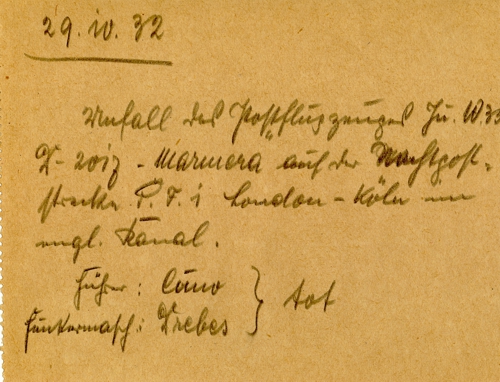 29. IV. 32
Unfall des Postflugzeuges Ju. W.33
D-2017 - "Marmara" auf der Nachtpost-
strecke P. T. 1 London - Köln im
engl. Kanal.
Führer: Cuno } tot
Funkermasch: Drebes